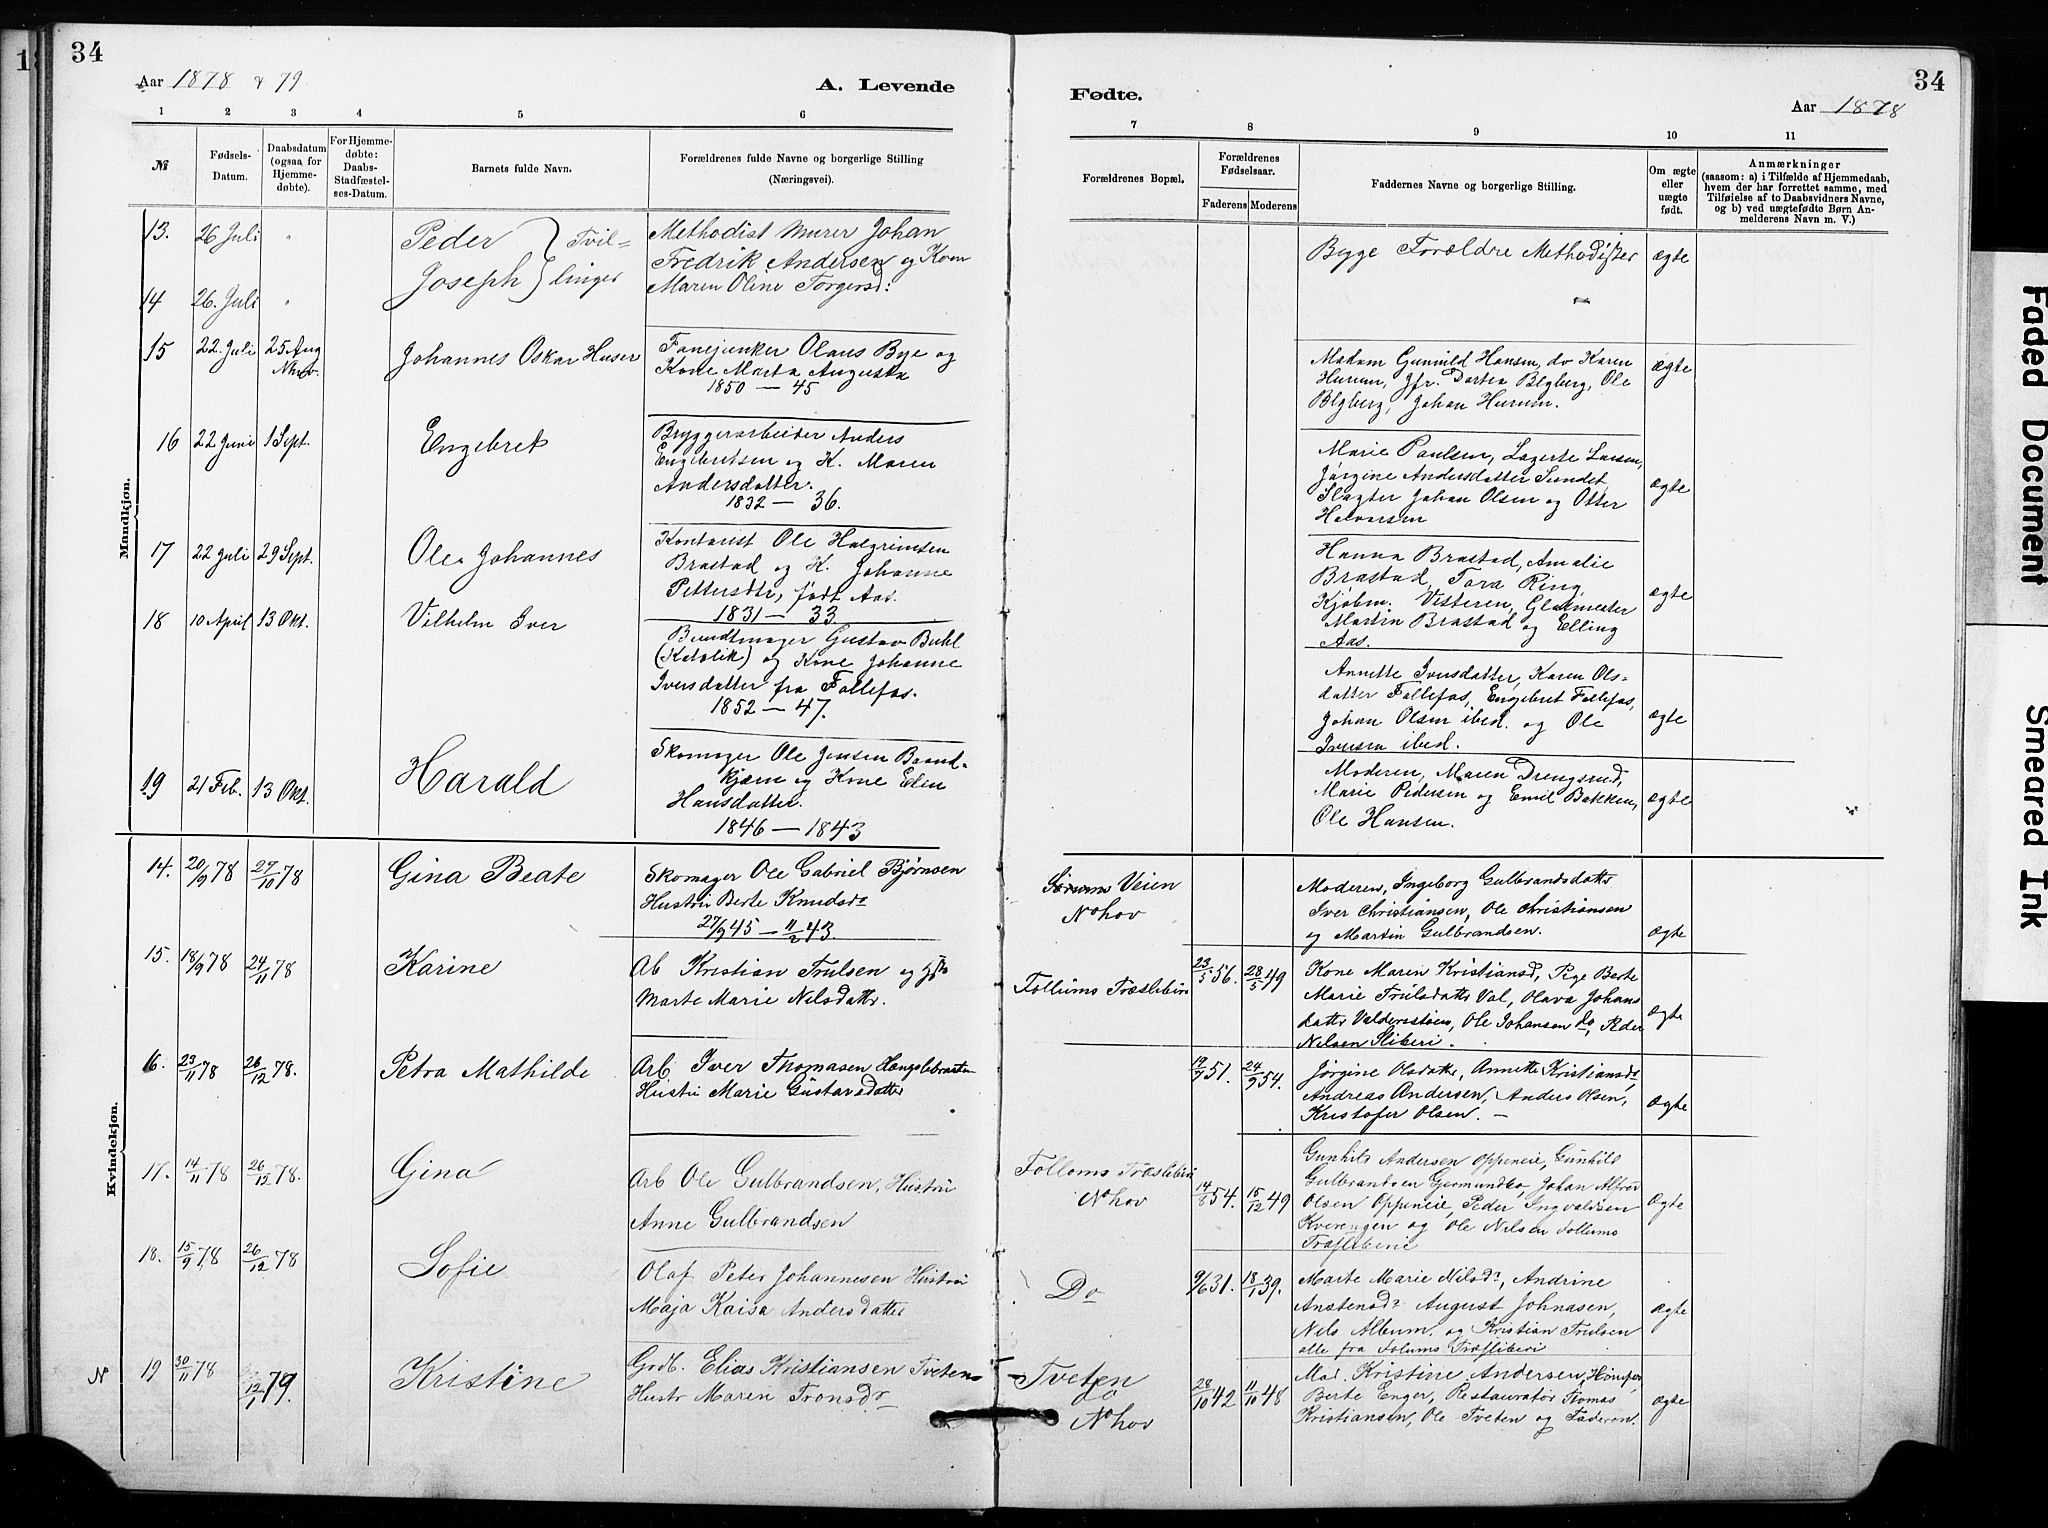 34
Aar 1878 & 79
A. Levende
1 2 3 4 5 6
№
Fødsels-Datum.
Daabsdatum (ogsaa for Hjemme-døbte).
For Hjemme-døbte: Daabs-Stadfæstel-ses-Datum.
Barnets fulde Navn.
Forældrenes fulde Navne og borgerlige Stilling
(Næringsvei).
Mandkjøn.
13. 26 Juli " Peder } Tvil-
14 26. Juli " Joseph } linger
Methodist Murer Johan
Fredrik Andersen og Kone
Maren Oline Torgersd:
15 22. Juli 25 Aug Nhov. Johannes Oskar Huser
Fanejunker Olaus Bye og
Kone Marta Augusta
1850 — 45
16 22 Juni 1 Sept. Engebret
Bryggerarbeider Anders
Engebretsen og K. Maren
Andersdatter.
1832 — 36.
17 22 Juli 29 Sept. Ole Johannes
Kontorist Ole Halgrimsen
Brastad og K. Johanne
Pettersdtr, født Aas.
1831 — 33
18 10 April 13 Okt. Vilhelm Iver
Bundtmager Gustav Buhl
(Katolik) og Kone Johanne
Iversdatter fra Follefos.
1852 — 47.
19 21 Feb. 13 Okt. Harald
Skomager Ole Jensen Baand-
kjærn og Kone Elen
Hansdatter.
1846 — 1843
Kvindekjøn.
14. 20/9 78 27/10 78 Gina Beate
Skomager Ole Gabriel Bjørnsen
Hustru Berte Knudsdr
27/9 45 — 11/2 43.
15. 18/9 78 24/11 78 Karine
Ab Kristian Trulsen og
Marte Marie Nilsdattr.
16. 23/11 78 26/12 78. Petra Mathilde
Arb Iver Thomasen
Hustru Marie Gustavsdatter
17. 14/11 78 26/12 78. Gina
Arb Ole Gulbrandsen, Hustru
Anne Gulbrandsen
18. 15/9 78 26/12 78 Sofie
Olaf Peter Johannesen Hustru
Maja Kaisa Andersdatter
N 19 30/11 78 12/1 79. Kristine
Grdb. Elias Kristiansen Tveten
Hustr Maren Tronsdr
34
Fødte.
Aar 1878
7 8 9 10 11
Forældrenes Bopæl.
Forældrenes Fødselsaar.
Faderens Moderens
Faddernes Navne og borgerlige Stilling.
Om ægte eller uægte født.
Anmærkninger
(saasom: a) i Tilfælde af Hjemmedaab,
hvem der har forrettet samme, med
Tilføielse af to Daabsvidners Navne,
og b) ved uægtefødte Børn An-
melderens Navn m. V.)
Begge Forældre Methodister ægte
Madam Gunnild Hansen, do Karen
Hurum, Jfr. Dortea Blyberg, Ole
Blyberg, Johan Hurum.
ægte
Marie Paulsen, Lagerte Larsen,
Jørgine Andersdatter Sundet,
Slagter Johan Olsen og Otter
Halvorsen
ægte
Hanna Brastad, Amalie
Brastad, Tora Ring,
Kjøbm. Vesteren, Glasmester
Martin Brastad og Elling
Aas.
ægte
Annette Iversdatter, Karen Ols-
datter Follefos, Engebret Follefos,
Johan Olsen ibid. og Ole
Iversen ibid.
ægte
Moderen, Maren Drengsrud,
Marie Pedersen og Emil Bakken,
Ole Hansen.
ægte
Veien
Nohov
Moderen, Ingeborg Gulbrandsdattr
Iver Christiansen, Ole Christiansen
og Martin Gulbrandsen.
ægte
Follums Træsliberi
23/5 56. 28/5 49
Kone Maren Kristiansd, Pige Berte
Marie Trulsdattr Val, Olava Johans
datter Valdersstøen, Ole Johansen do, Peder
Nilsen Sliberi.
ægte
19/9 51. 24/9 54.
Jørgine Olsdattr, Annette Kristiansdr,
Andreas Andersen, Anders Olsen,
Kristofer Olsen. —
ægte
Follums Træsliberi
Nohov
14/8 54. 15/12 49
Gunhild Andersen Oppeneie, Gunhild
Gulbrandsen Germundbo, Johan Alfred
Olsen Oppeneie, Peder Ingvaldsen
Kverengen og Ole Nilsen Follums
Træsliberie
ægte
Do
9/6 31. 18/1 39.
Marte Marie Nilsdr, Andrine
Anstensdr August Johnasen,
Nils Album. og Kristian Trulsen
alle fra Folums Træsliberi
ægte
Tveten
Nohov
28/10 42 11/10 48
Mad. Kristine Andersen, Hønefos,
Berte Enger, Restauratør Tomas
Kristiansen, Ole Tveten og Faderen.
ægte
Faded Document
Smeared Ink